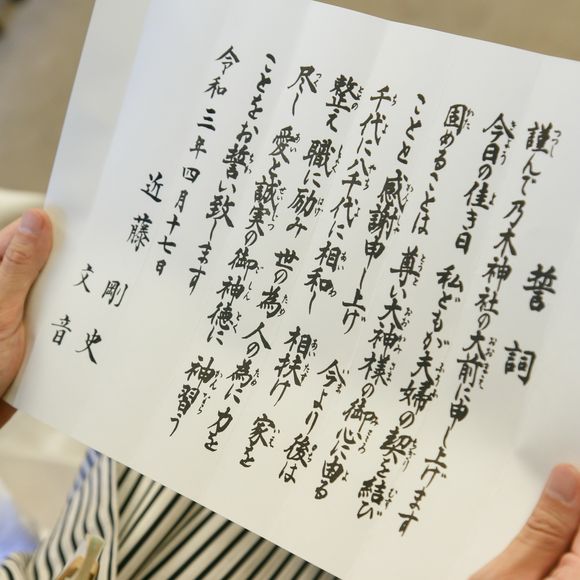 誓詞
謹んで乃木神社の大前に申し上げます
今日の佳き日 私どもが夫婦の契を結び
固めることは 尊い大神様の御心に由る
ことと 感謝申し上げ 今より後は
千代に八千代に相和し 相扶け 家を
整え 職に励み 世の為 人の為に力を
尽し 愛と誠実の御神徳に 神習う
ことをお誓い致します
令和三年四月十七日
近藤 剛史
文音